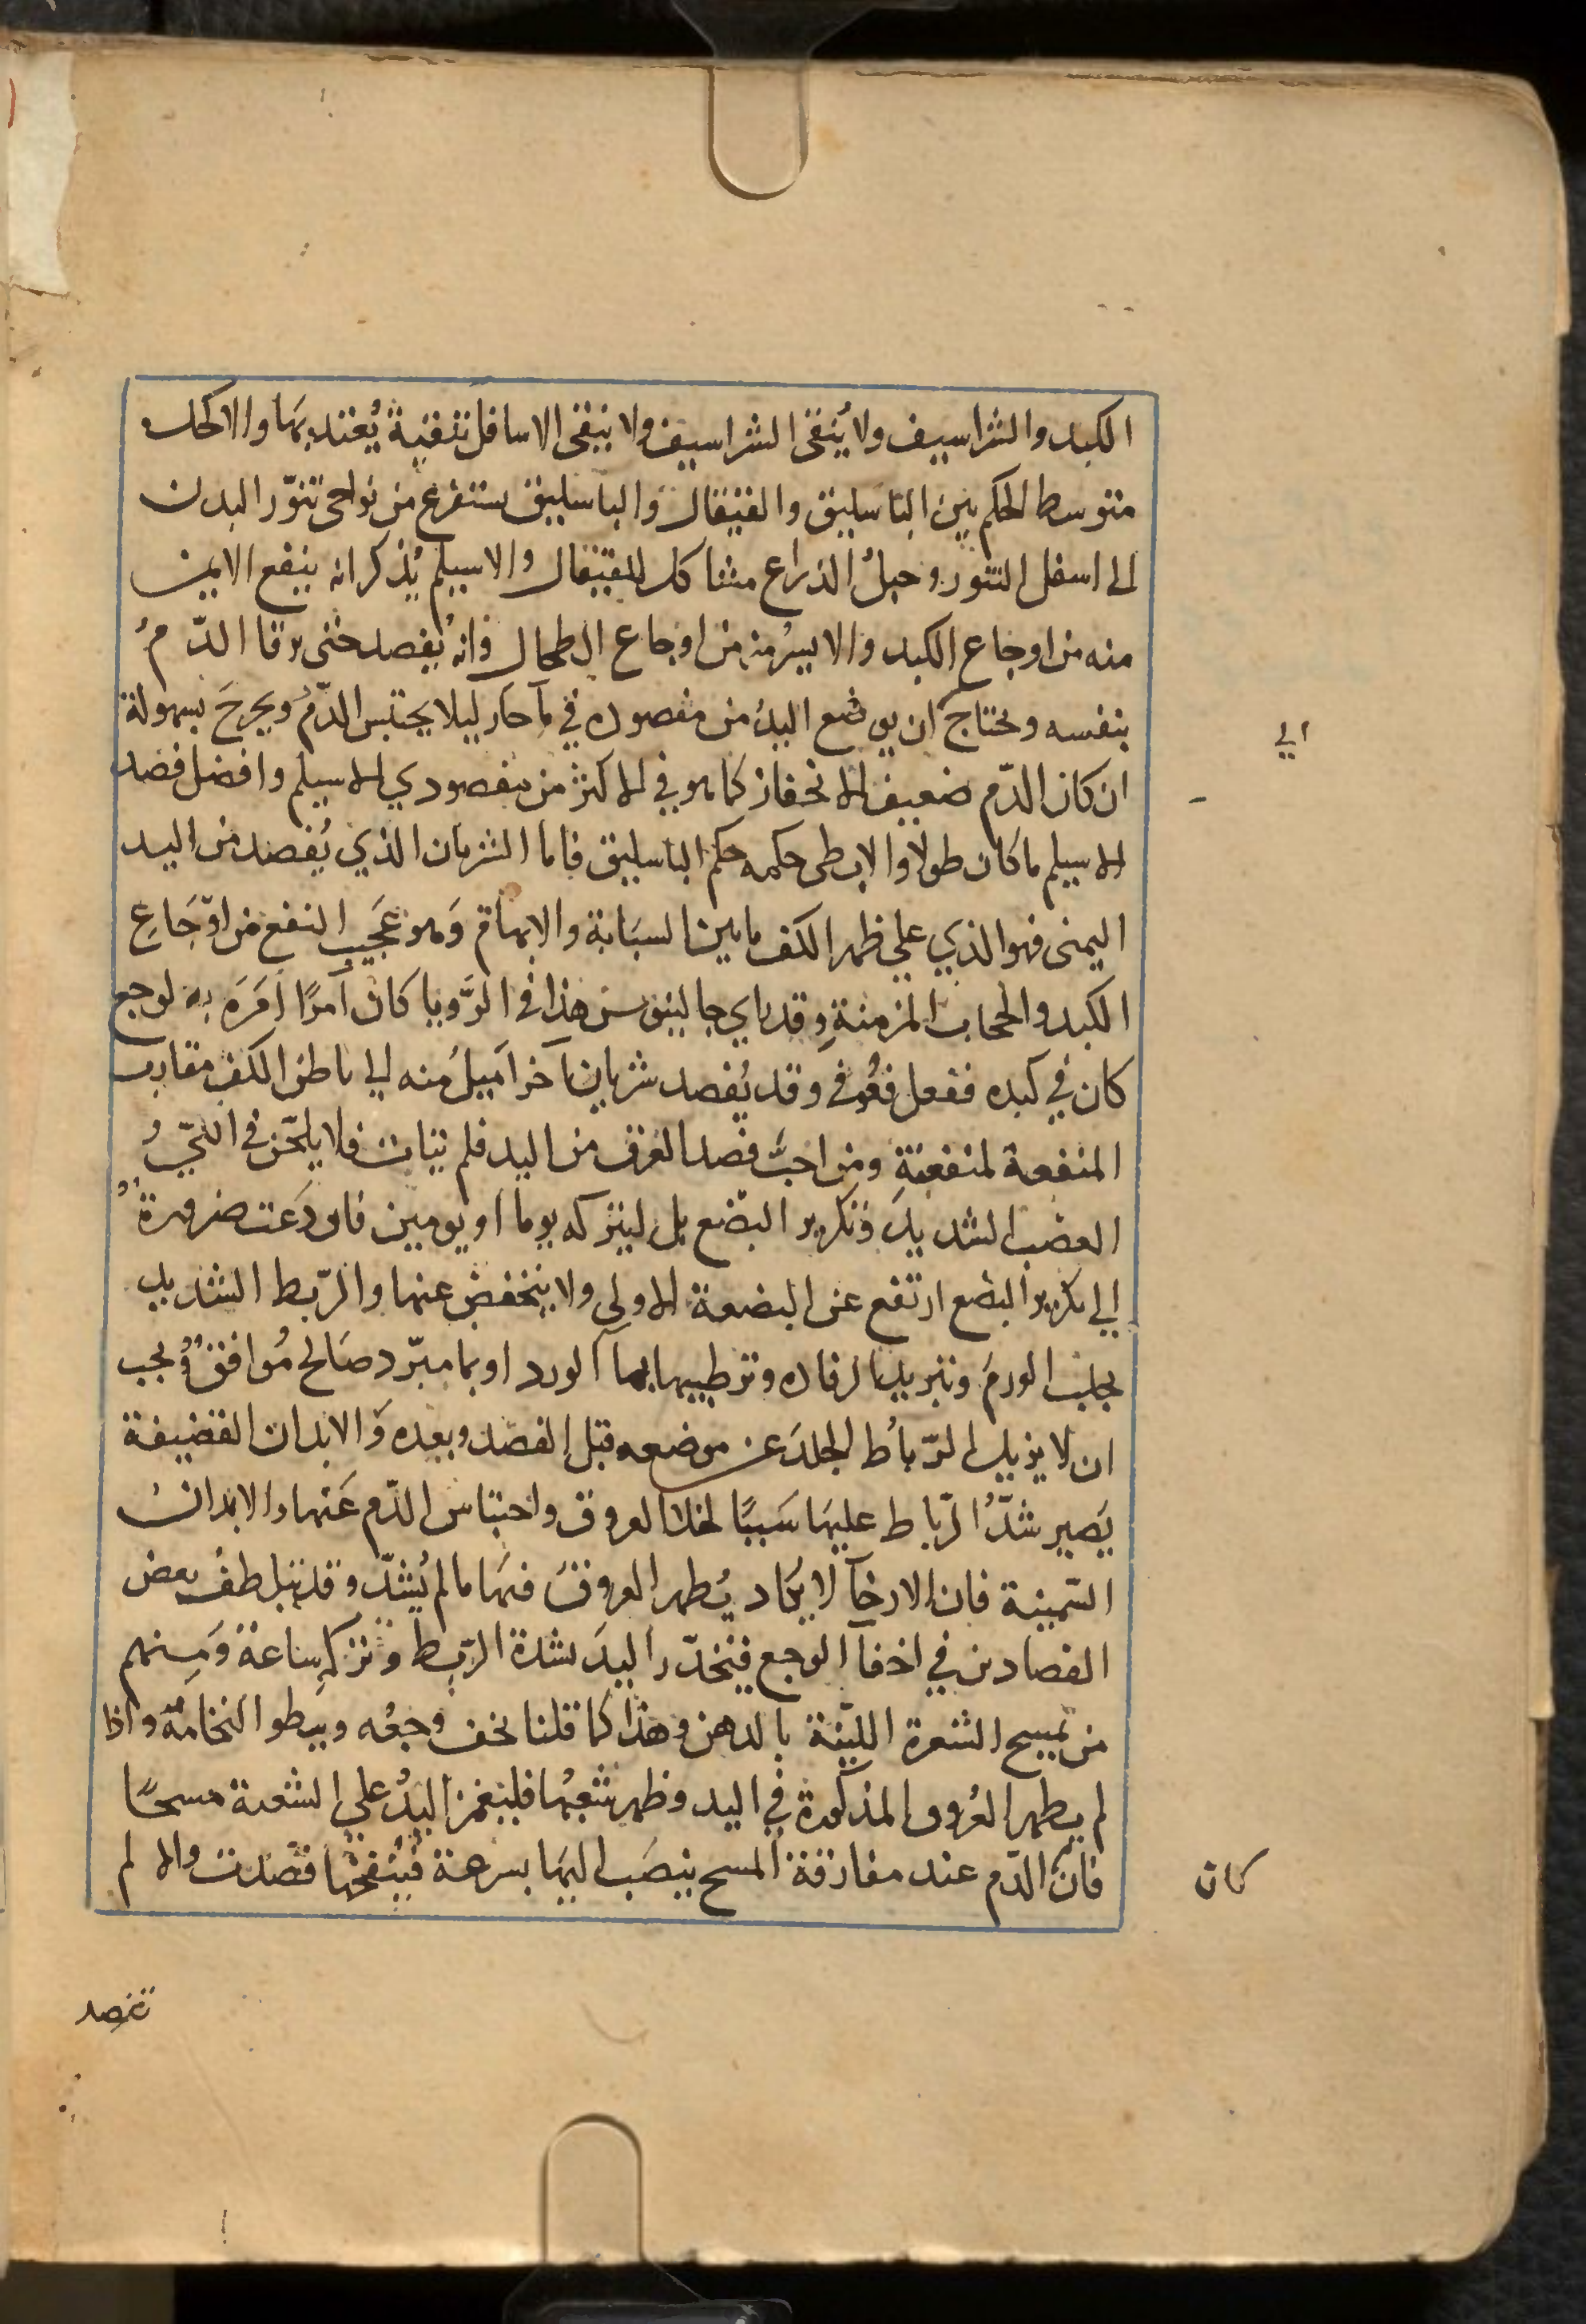 الكبد والشراسيف ولا يُنقى الشراسيف ولا ينقى الاسافل تنقية يُعتد بها والاكحل
متوسط الحكم بين الباسليق والقيفال والباسليق يستفرغ من نواحى تنوّر البدن
الى اسفل التنور وحبلُ الذراع مشاكل للقيفال والاسيلم يُذكر انه ينفع الايمن
منه من اوجاع الكبد والايسرُ منه من اوجاع الطحال وانهُ يُفصد حتى يرقا الدّمُ
بنفسه ويحتاج ان يوضع اليدُ من مفصوده في مآ حار ليلا يحتبس الدّمُ ويخرجَ بسهولة
الي
ان كان الدّم ضعيف الانحفاز كما هو في الاكثر من مفصودي الاسيلم وافضل فصد
الاسيلم ما كان طولا والابطى حكمه حكم الباسليق فاما الشريان الذي يُفصد من اليد
اليمنى فهو الذي علي ظهر الكف ما بين السبابة والابهام وَهو عَجيب النفع من اوّجَاعِ
الكبد والحجاب المزمنةِ وقد راي جالينوس هذا في الرّويا كان آمرًا اَمَرَه به لوجع
كان في كبده ففعل فعُوفى وقد يُفصد شريان آخر اَميلُ منه الي باطن الكف مقارب
المنفعة لمنفعتةِ ومن احبّ فصد العرق من اليد فلم يتات فلا يلحّن في اللّيّ و
العصب الشديد وتكرير البضع بل ليتركه يوما او يومين فان دَعت ضرورة
الي تكرير البضع ارتفع عن البضعة الاولى ولا ينخفض عنها والرّبط الشديد
يجلب الورمَ وتبريد الرفاده وترطيبها بمآ الورد او بما مبرّد صَالح مُوافق ويجب
ان لا يزيل الرّباُط الجلدَ عن موضعه قبل الفصد وبعده وَالابدان القضيفة
يَصير شدّ الرّباط عليهَا سَببًا لخلا العروق واحتباس الدّم عَنها والابدان
السّمينة فان الارخآ لا يكاد يُظهر العروقَ فيهَا ما لم يُشدّ وقد يتلطف بعض
الفصادين في اخفآ الوجع فيخدّر اليدَ بشدة الرّبط وتركه ساعة وَمنهم
من يمسح الشعرة الليّنة بالدهن وهذا كما قلنا يخف وجعُه ويبطو التحامُهُ واذا
لم يظهر العُروق المذكورة في اليد وظهر شعبُها فليغمز اليدُ علي الشعبة مسحًا
فان الدّم عند مفارقة المسح ينصَب اليهَا بسرعة فيُنفخها فصدت والا لم
كان
تفصد